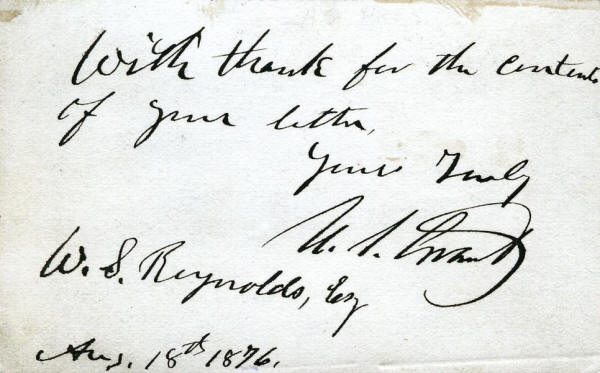 With thank for the contents
of your letter,
Yours Truly
U. S. Grant
W. S. Reynolds, Esq
Aug. 18th 1876.